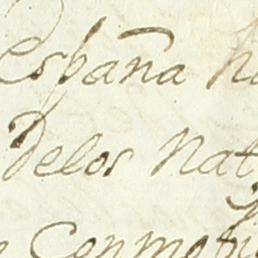 España
delos Nat
Conmoti